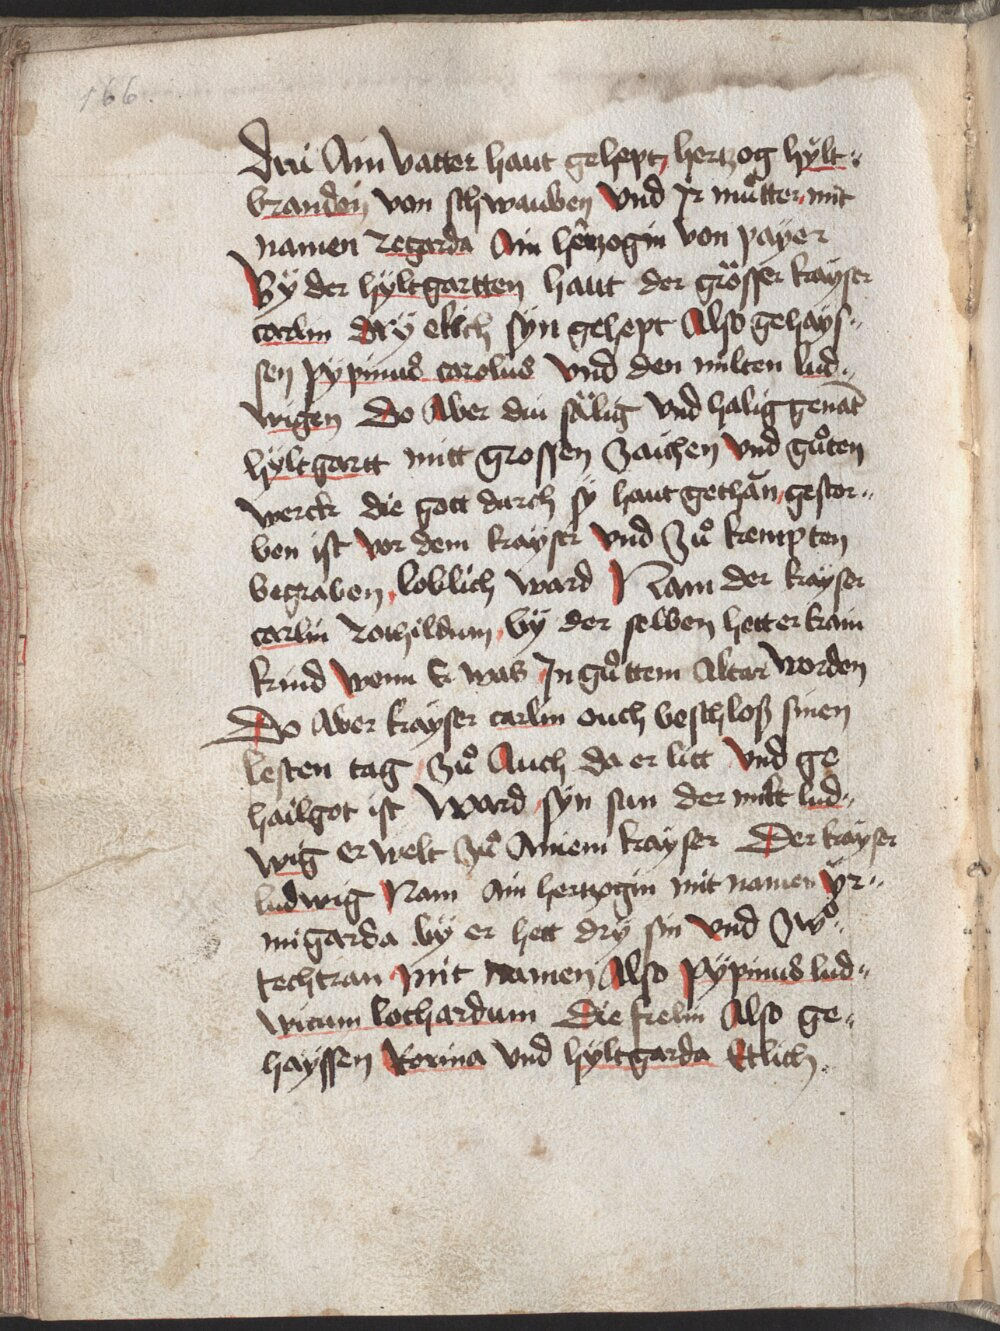 166.
Diu Ain vatter haut gehept hertzog hÿlt„
branden von schwauben vnd Ir mu̇tter mit
namen Regarda Ain hertzogin von payer
Bÿ der hÿltgartten haut der grösser kayser
carlin drÿ elich sün gehept Also gehays„
sen pÿpinus carolus vnd den milten lud„
wigen Do Aber diu sälig vnd halig genāt
hÿltgartt mitt grossen zaichen vnd gůten
werck die gott durch sÿ haut gethän gestor„
ben ist vor dem kayser vnd zů kempten
begraben loblich ward Nam der kayser
carlin Rothildum bÿ der selben hett er kain
kind wenn Er was In gůttem Altar worden
Do Aber kayser carlin ouch beschloß sinen
lesten tag zů Auch da er litt vnd ge
hailgot ist Ward syn sun der milt lud„
wig erwelt zů Ainem kayser Der kayser
ludwig Nam Ain hertzogin mit namen ÿr„
migarda bÿ er hett drÿ sün vnd zwo„
techtran mit namen Also pÿpinus lud„
wicum lothardum Die frelin Also ge„
hayssen Roxina vnd hÿltgarda Etlich